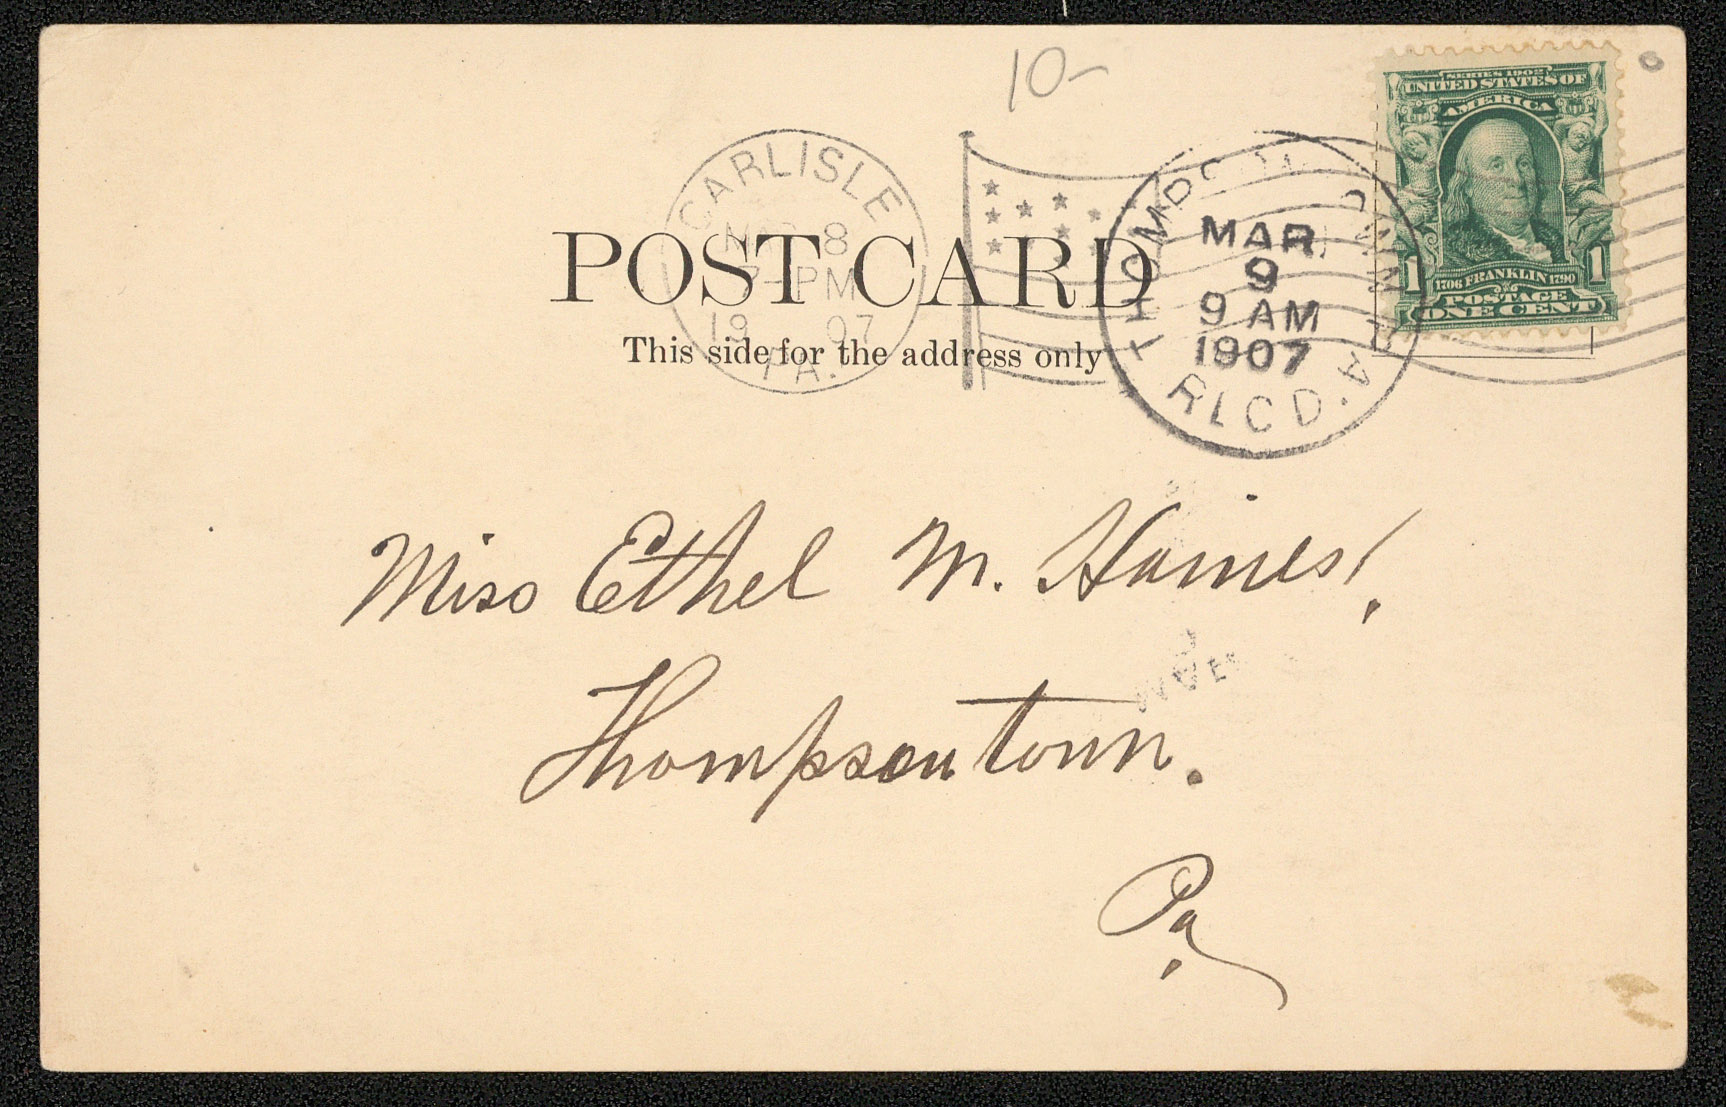 10-
SERIES 1902
UNITED STATES OF
AMERICA
1 1706 FRANKLIN 1790 1
POSTAGE
ONE CENT
CARLISLE
MAR 8
7-PM
19 07
PA.
THOMPSONTOWN PA.
MAR
9
9 AM
1907
RECD.
POST CARD
This side for the address only
Miss Ethel M. Haines,
Thompsontown.
Pa.